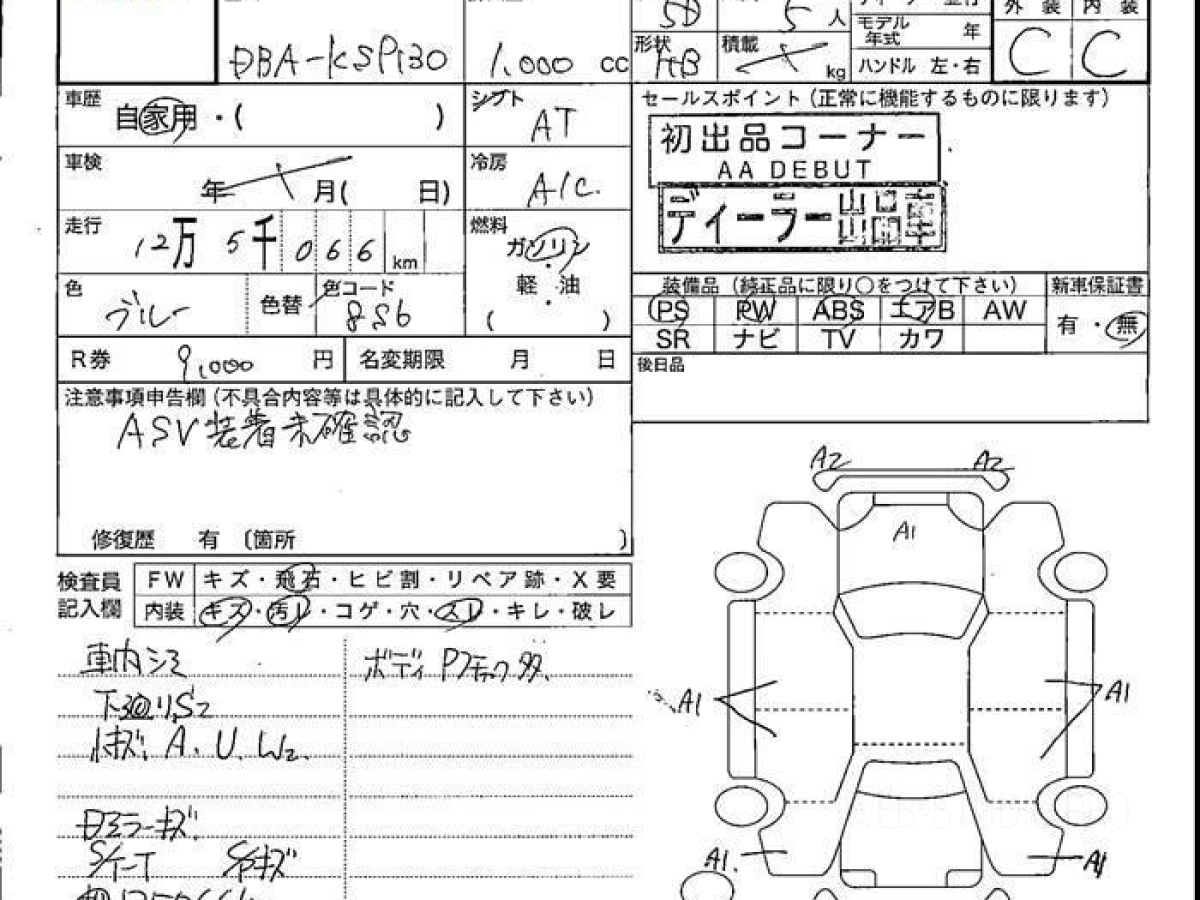 5D 5人
モデル年式 年
外装 内装
DBA-KSP130 1,000 cc
形状 HB 積載 kg
ハンドル 左・右
C C
車歴 自家用・( )
シフト AT
セールスポイント(正常に機能するものに限ります)
初出品コーナー
AA DEBUT
ディーラー
車検 年 月( 日)
冷房 A/C.
走行 12万5千066km
燃料 ガソリン
軽・油
( )
色 ブルー 色替 色コード 8S6
装備品(純正品に限り○をつけて下さい) 新車保証書
PS PW ABS エアB AW
有・無
SR ナビ TV カワ
R券 9,000 円 名変期限 月 日
後日品
注意事項申告欄(不具合内容等は具体的に記入して下さい)
ASV装着未確認
修復歴 有 〔箇所 〕
検査員記入欄
FW キズ・飛石・ヒビ割・リペア跡・X要
内装 キズ・汚レ・コゲ・穴・スレ・キレ・破レ
車内シミ
下廻りS2
小キズ A、U、W2、
ミラーキズ
ボディ Pフチック多
A2 A2
A1
A1 A1
A1. A1